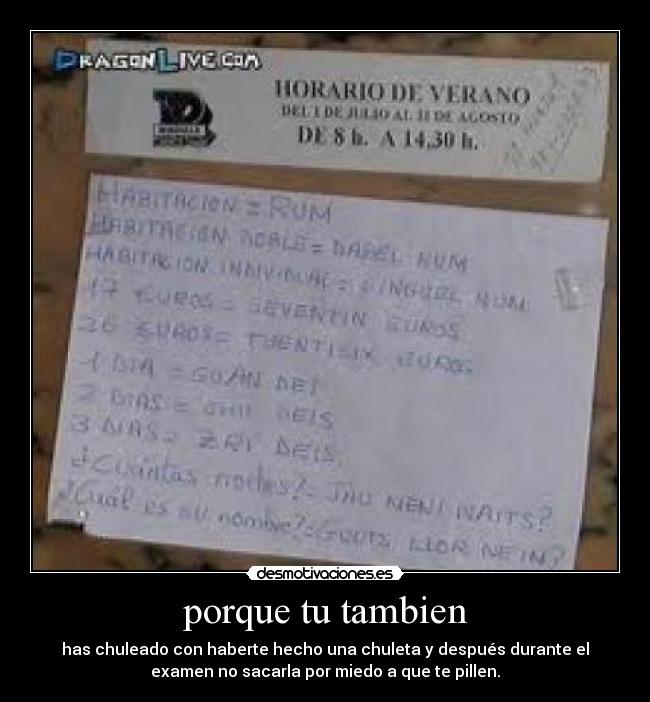 DRAGONLIVE.COM
HORARIO DE VERANO
DEL 1 DE JULIO AL 31 DE AGOSTO
DE 8 h. A 14,30 h.
HABITACION = RUM
HABITACION DOBLE = DABEL RUM
HABITACION INDIVIDUAL = SINGUEL RUM
17 EUROS = SEVENTIN EUROS
26 EUROS = TUENTISIX EUROS
1 DIA = GUAN DEI
2 DIAS = DEIS
3 DIAS = ZRI DEIS.
¿Cuántas noches? = JAU MENI NAITS?
¿Cuál es su nombre? = GUOTS LLOR NEIM?
desmotivaciones.es
porque tu tambien
has chuleado con haberte hecho una chuleta y después durante el
examen no sacarla por miedo a que te pillen.